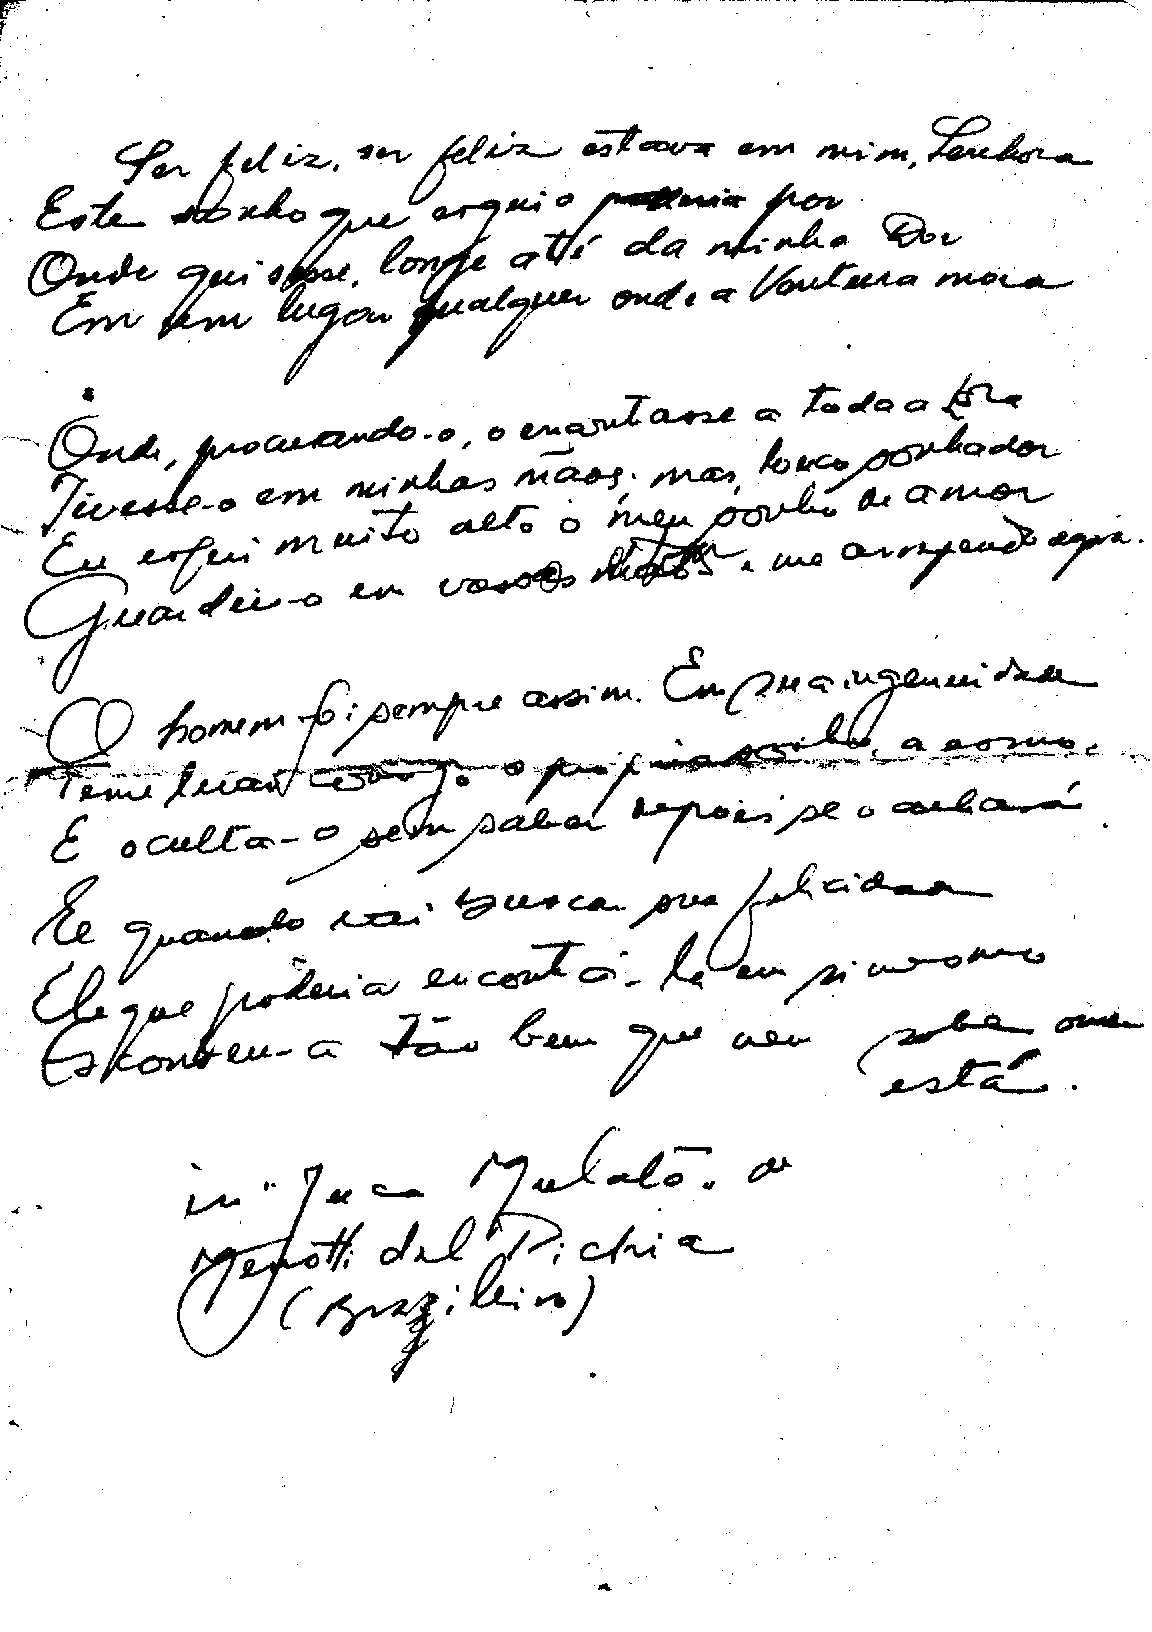 Ser feliz, ser feliz estava em mim, Senhora
Este sonho que erguio poderia por
Onde quisesse, longe até da minha Dor
Em um lugar qualquer onde a Ventura mora
Onde, procurando-o, o encontasse a toda a hora
Tivesse-o em minhas mãos. mas, louco sonhador
Eu ergui muito alto o meu sonho de amor
Guardei-o em vossos e me arrependo agora.
O homem foi sempre assim. Em sua ingenuidade
Teme levar comsigo o proprio sonho, a esmo,
E oculta-o sem saber depois se o achará
E quando vai buscar sua felicidade
Ele que poderia encontrá-la em si mesmo
Escondeu-a tão bem que nem sabe onde
está.
in "Juca Mulato" de
Menotti del Pichia
(Brazileiro)